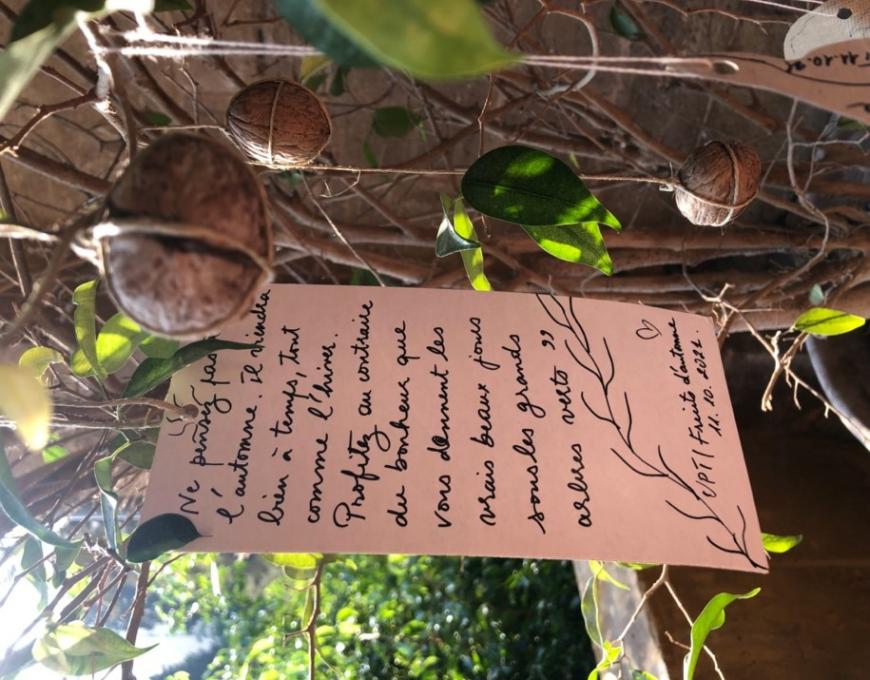 Ne pensez pas
l'automne. il viendra
bien à temps, tout
comme l'hiver.
Profitez au contraire
du bonheur que
vous donnent les
vrais beaux jours
sous les grands
arbres verts ”
Fruits d'automne
11.10.2022.
11.10.2